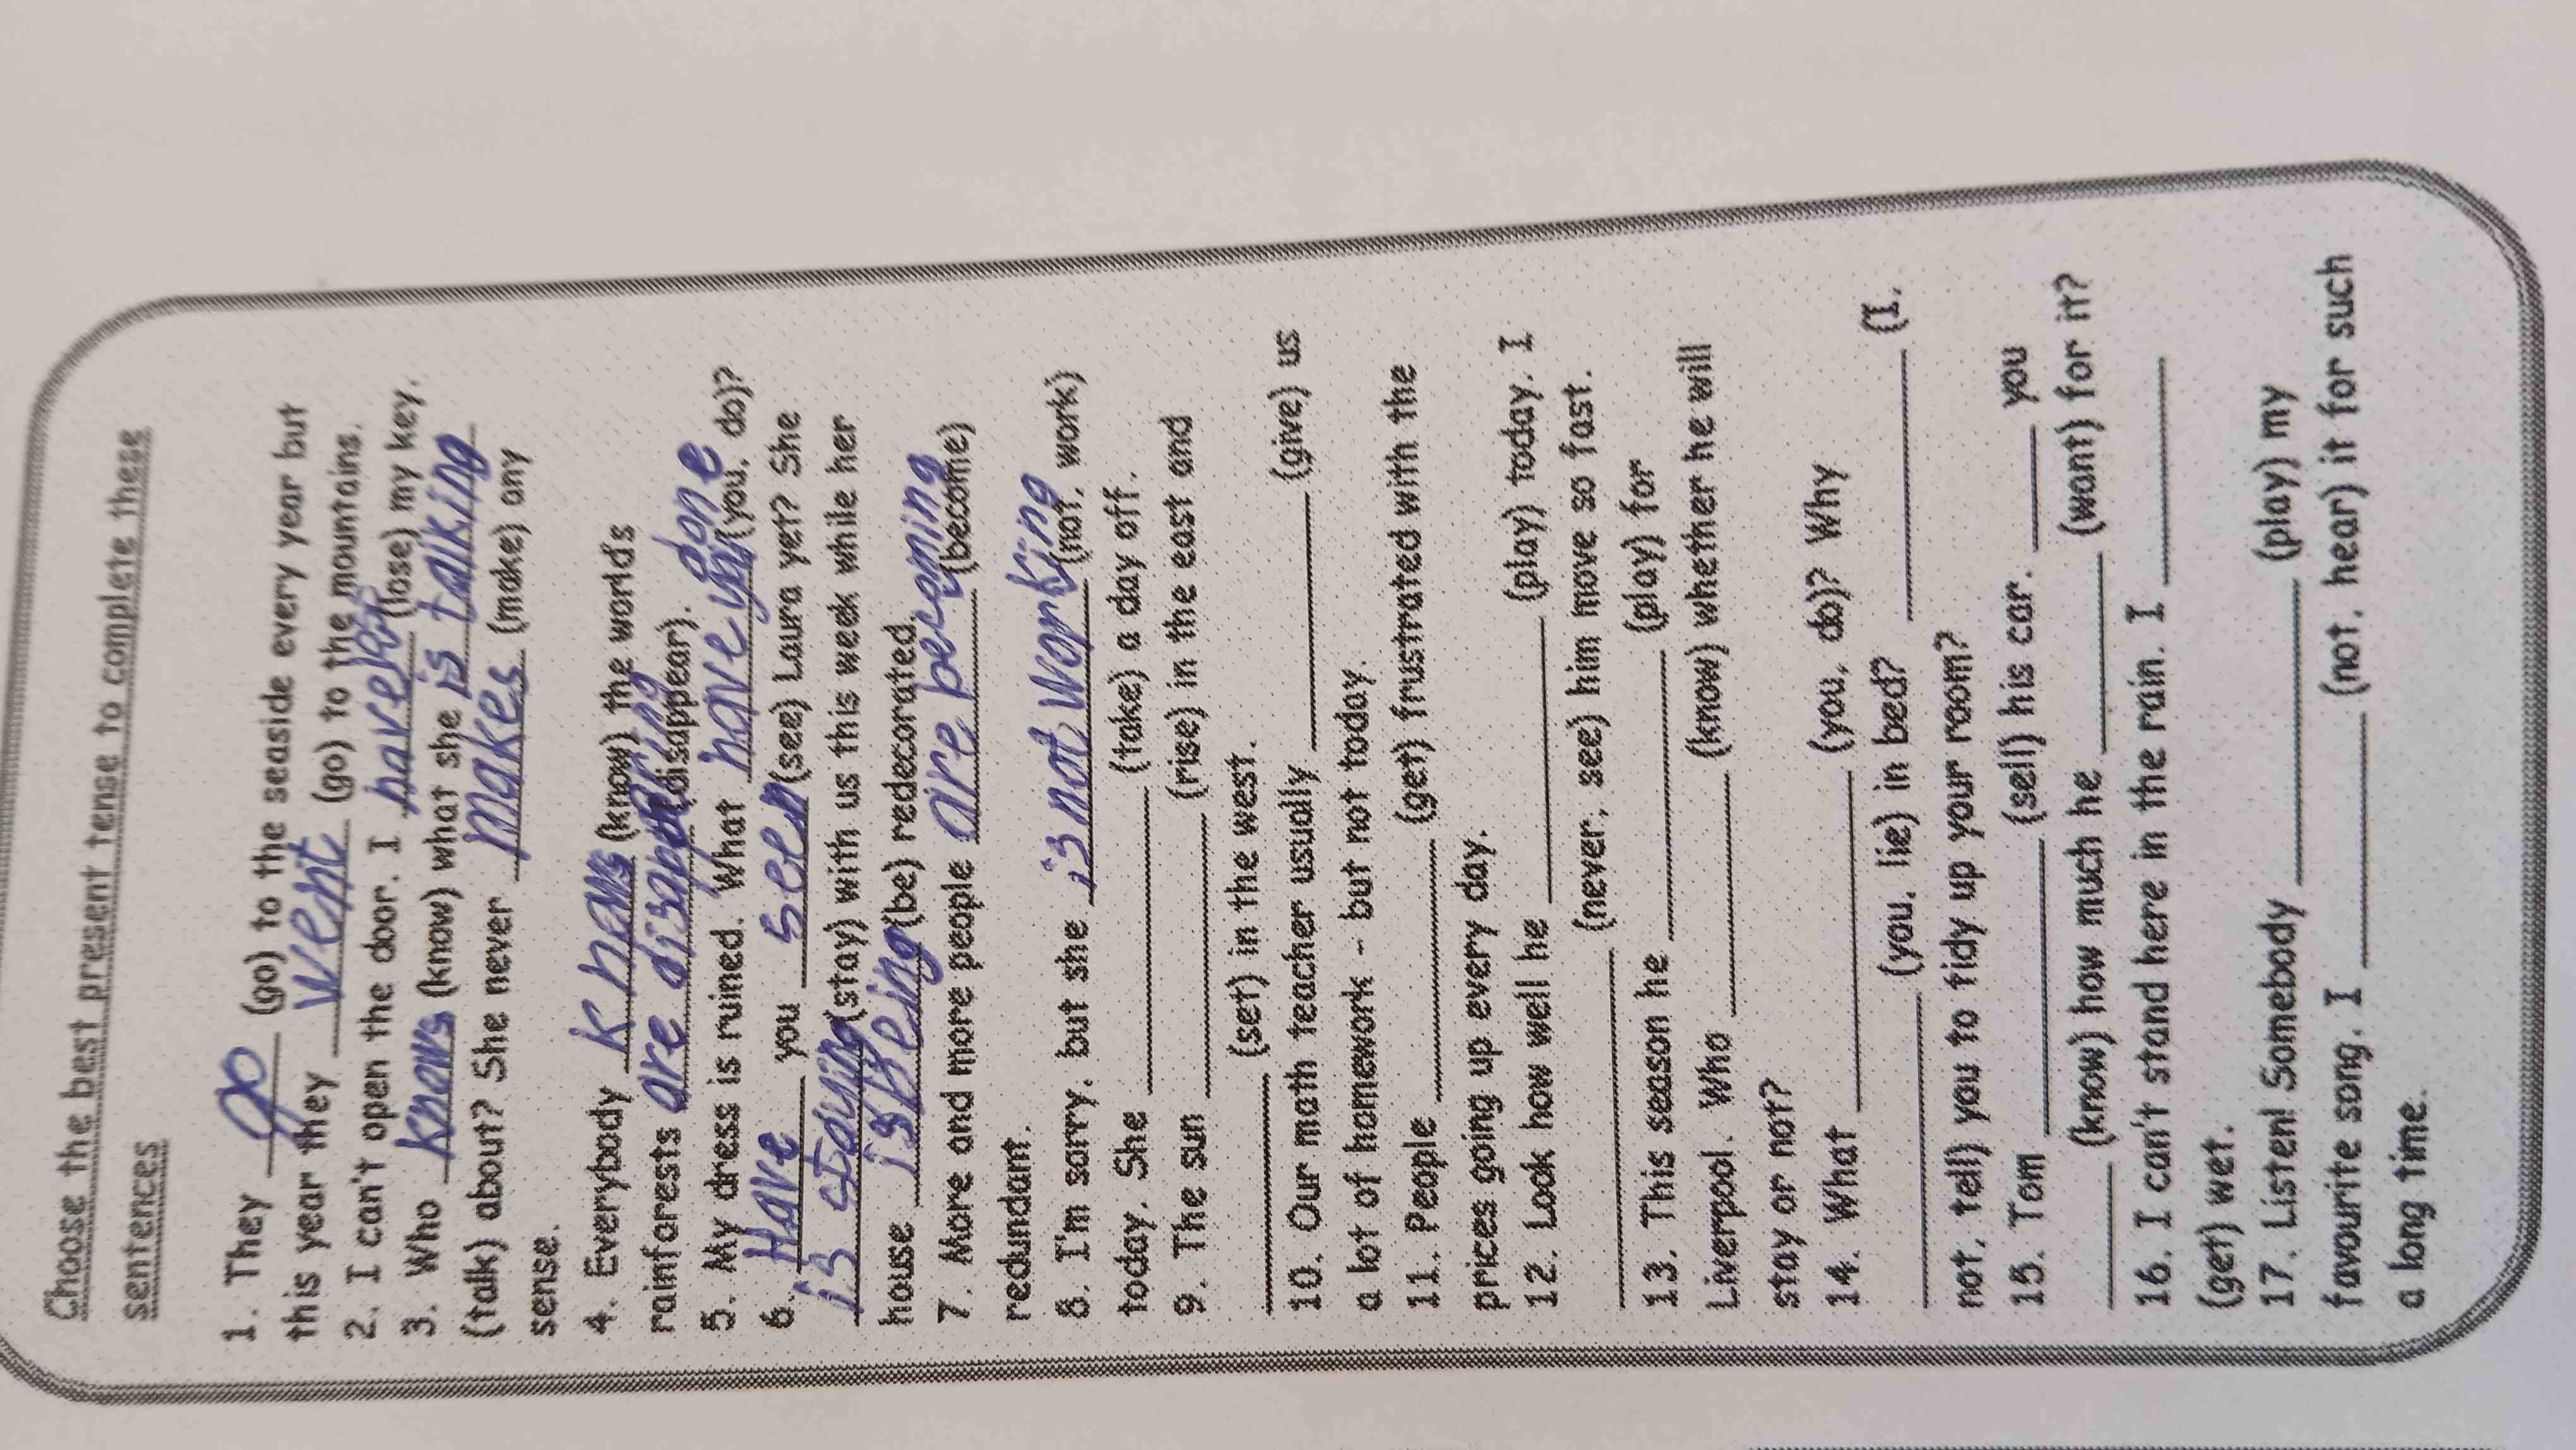 Choose the best present tense to complete these
sentences
1. They go (go) to the seaside every year but
this year they went (go) to the mountains.
2. I can't open the door. I have lost (lose) my key.
3. Who knows (know) what she is talking
(talk) about? She never makes (make) any
sense.
4. Everybody knows (know) the world's
rainforests are disappearing (disappear).
5. My dress is ruined. What have you done (you, do)?
6. Have you seen (see) Laura yet? She
is staying (stay) with us this week while her
house is being (be) redecorated.
7. More and more people are becoming (become)
redundant.
8. I'm sorry, but she is not working (not, work)
today. She ______ (take) a day off.
9. The sun ______ (rise) in the east and
______ (set) in the west.
10. Our math teacher usually ______ (give) us
a lot of homework - but not today.
11. People ______ (get) frustrated with the
prices going up every day.
12. Look how well he ______ (play) today. I
______ (never, see) him move so fast.
13. This season he ______ (play) for
Liverpool. Who ______ (know) whether he will
stay or not?
14. What ______ (you, do)? Why
______ (you, lie) in bed? ______ (I,
not, tell) you to tidy up your room?
15. Tom ______ (sell) his car. ____ you
____ (know) how much he ______ (want) for it?
16. I can't stand here in the rain. I ______
(get) wet.
17. Listen! Somebody ______ (play) my
favourite song. I ______ (not, hear) it for such
a long time.